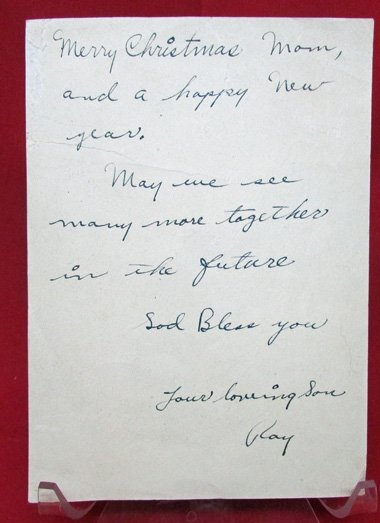 Merry Christmas Mom,
and a happy New
year.
May we see
many more together
in the future
God Bless you
Your loveing Son
Ray